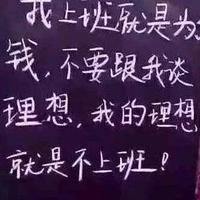 我上班就是为
钱,不要跟我谈
理想,我的理想
就是不上班!